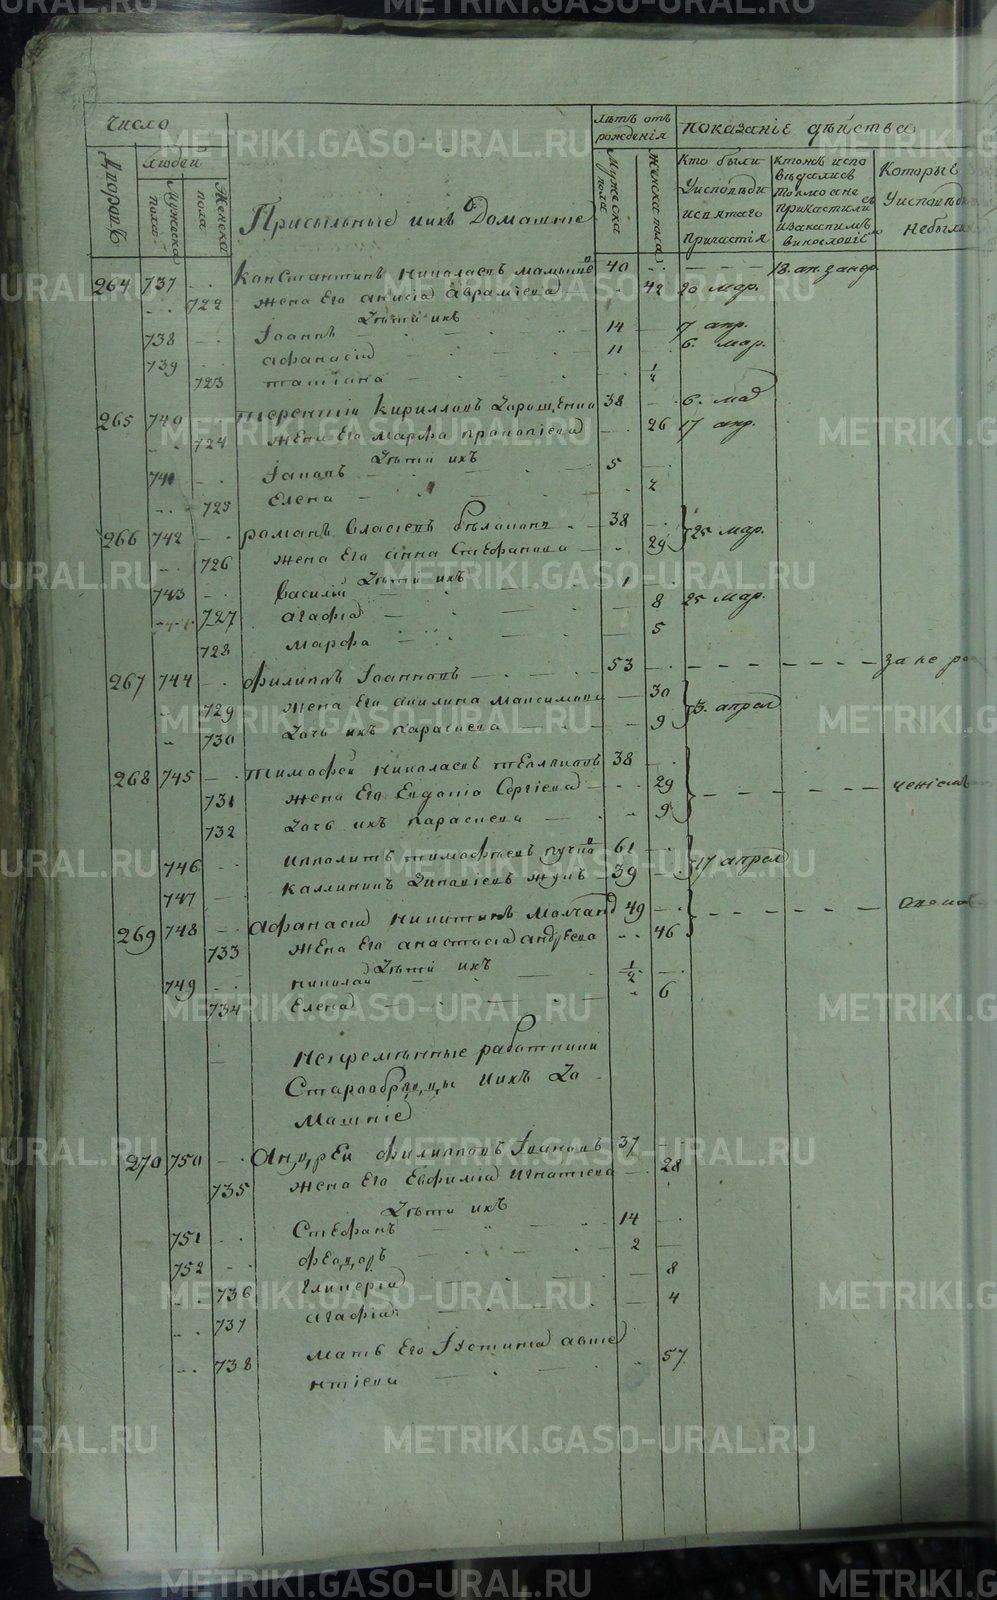 Число
Людей
Дворовъ
Мужеска пола
Женска пола
Присыльные иихъ Домашніе
лѣтъ отъ рожденія
Мужеска пола
Женска пола
показаніе дѣйства
Кто были Уисповѣди исвятаго причастія
Которые
Уисповѣди
небыли
264 737 Константинъ Николаевъ 40
722 жена Его анисіа Авраміева 42 20 мар.
Дѣти ихъ
738 Іоаннъ 14 17 апр.
739 афанасій 11 6. мар.
723 татіана 1/2
265 740 терентій Кирилловъ 38 6. мар
724 жена Его Марфа прокопіева 26 17 апр.
Дѣти ихъ
741 Іаковъ 5
725 Елена 2
266 742 романъ Власіевъ 38 25 мар.
726 жена Его Анна Стефанова 29
Дѣти ихъ
743 Василій 1
727 агафіа 8 25 мар.
728 марфа 5
267 744 Филиппъ Іоанновъ 53 за не
729 жена Его акилина максимова 30 13. апрел
730 Дочь ихъ параскева 9
268 745 тимофей николаевъ 38
731 жена Его Евдокіа Сергіева 29
732 Дочь ихъ параскева 9
746 ипполитъ тимофѣевъ 61 17 апрел
747 каллиникъ Зиновіевъ 39
269 748 Афанасій Никитинъ 49
733 жена Его анастасіа андреева 46
Дѣти ихъ
749 николай 1/2
734 Елена 6
Непремѣнные работники
Старообрядцы иихъ До
машніе
270 750 Андрей филипповъ Іоановъ 37
735 жена Его Евфиміа игнатіева 28
Дѣти ихъ
751 Стефанъ 14
752 феодоръ 2
736 гликеріа 8
737 агафіа 4
738 мать Его 57
METRIKI.GASO-URAL.RU